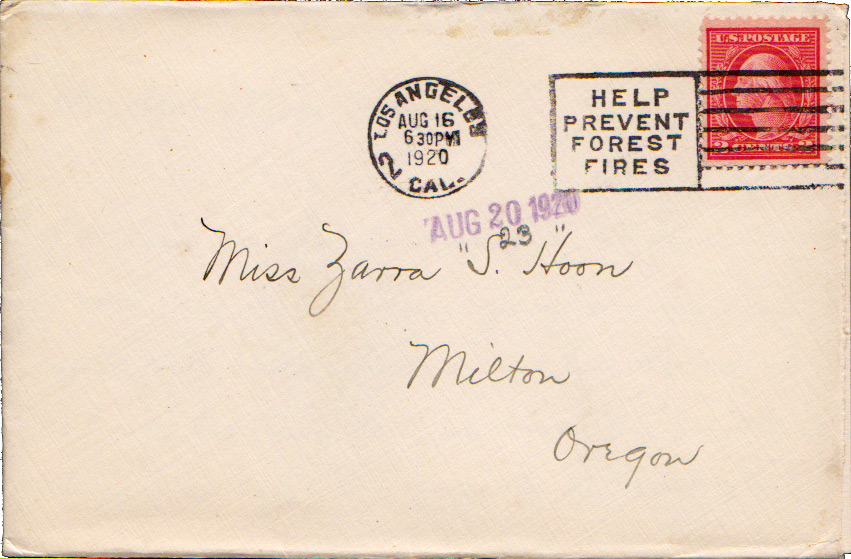 U.S. POSTAGE
LOS ANGELES
AUG 16
6 30 PM
1920
2 CAL.
HELP
PREVENT
FOREST
FIRES
AUG 20 1920
23
Miss Zarra "S." Hoon
Milton
Oregon